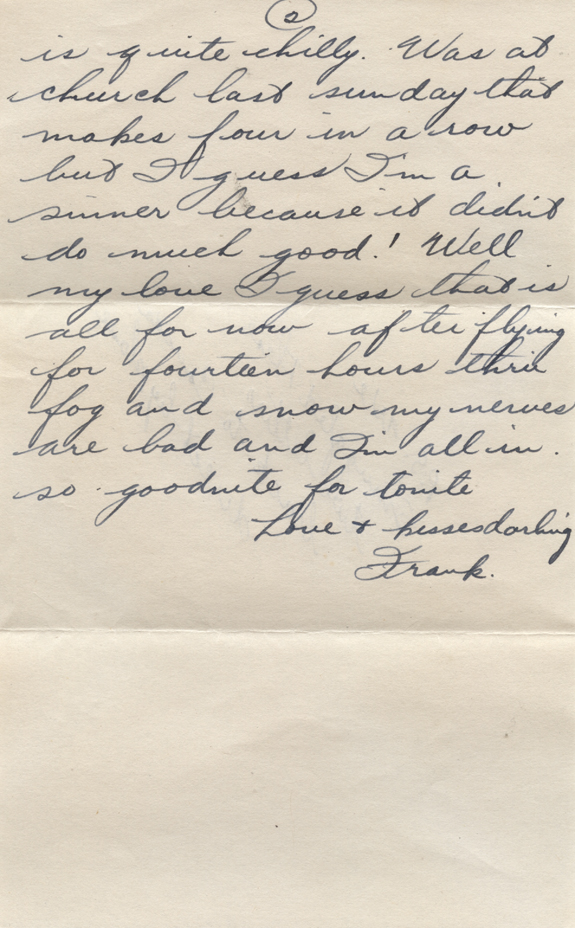 2
is quite chilly. Was at
church last sunday that
makes four in a row
but I guess I'm a
sinner because it didn't
do much good! Well
my love I guess that is
all for now after flying
for fourteen hours thru
fog and snow my nerves
are bad and I'm all in.
so goodnite for tonite
Love & kisses darling
Frank.